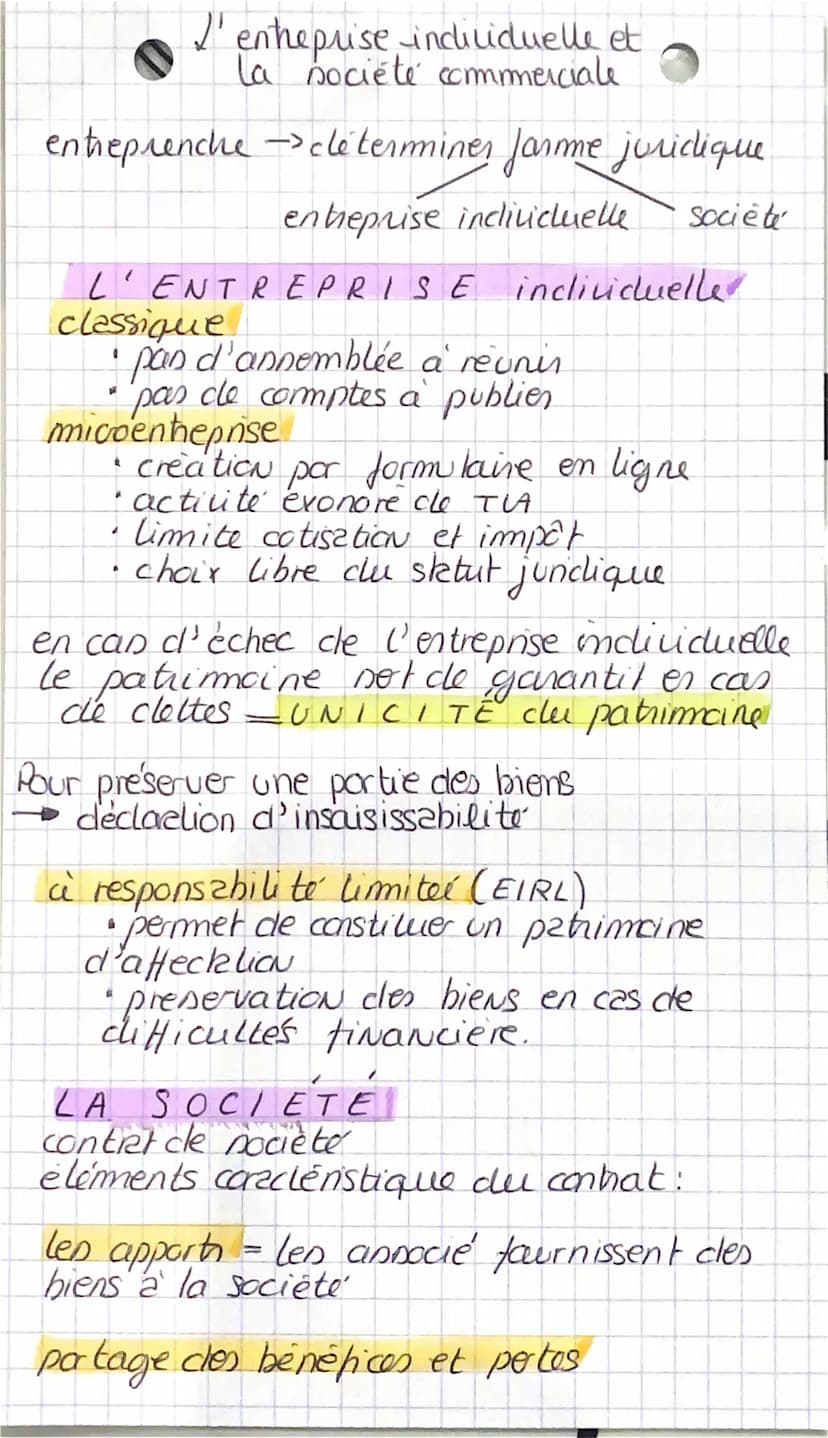 L'entreprise individuelle et
la société commerciale
entreprendre → déterminer forme juridique
entreprise individuelle société
L'ENTREPRISE individuelle
classique
• pas d'assemblée à réunir
• pas de comptes à publier
microentreprise
• création par formulaire en ligne
• activité exonoré de TVA
• limite cotisation et impôt
• choix libre du statut juridique
en cas d'échec de l'entreprise individuelle
le patrimoine sert de garantit en cas
de dettes = UNICITÉ du patrimoine
Pour préserver une partie des biens
→ déclaration d'insaisissabilité
à responsabilité limiteé (EIRL)
• permet de constituer un patrimoine
d'affecktion
• preservation des biens en cas de
difficultés financière.
LA SOCIÉTÉ
contrat de société
éléments caractéristique du contrat :
les apports = les associé fournissent des
biens à la société
partage des bénéfices et pertes